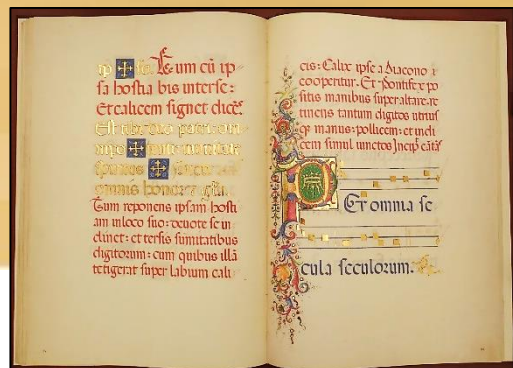 ip ✠ so. Et cum cū ip
sa hostia bis interse:
Et calicem signet dicēs
Est tibi deo patri om
nipo ✠ tenti in unitate
spiritus ✠ sancti
omnis honor et gl̄ia.
Cum reponens ipsam hosti
am in loco suo: deuote se in
clinet: et tersis sumitatibus
digitorum: cum quibus illā
tetigerat super labium cali
cis: Calix ipse a Diacono
cooperitur. Et Pontifex po
sitis manibus super altare. re
tinens tantum digitos utrius
q manus: pollicem: et indi
cem simul iunctos
Er omnia se
cula seculorum.